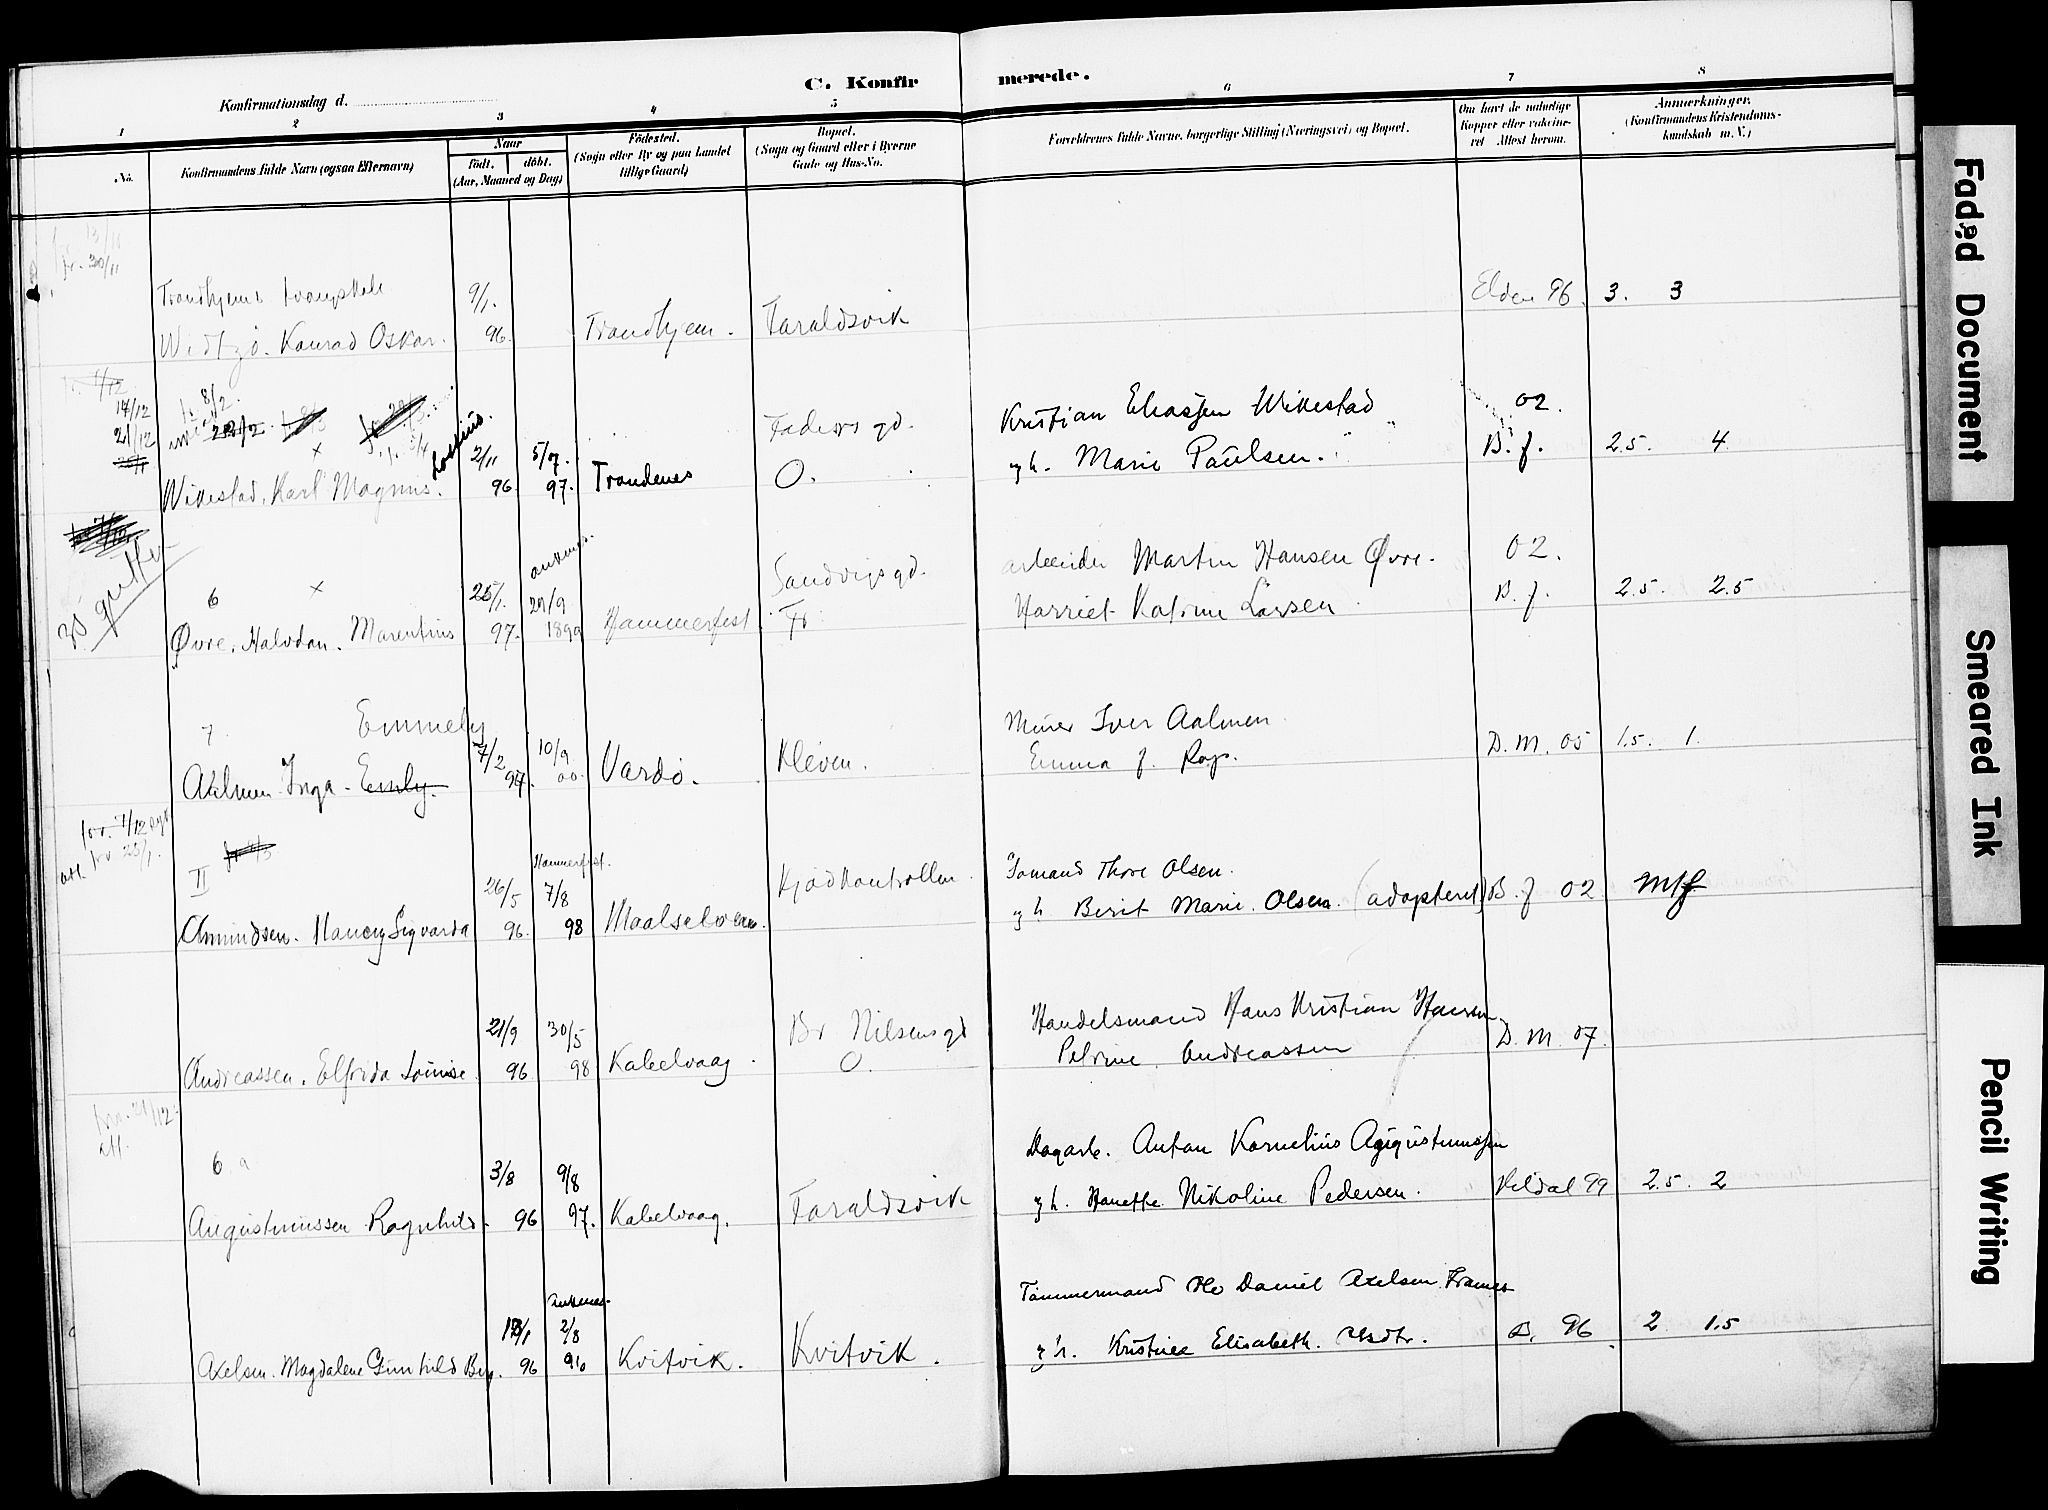 C. Konfirmerede.
Konfirmationsdag d.
1 2 3 4 5 6 7 8
No.
Konfirmandens fulde Navn (ogsaa Efternavn)
Naar
födt. döbt.
(Aar, Maaned og Dag)
Födested.
(Sogn eller By og paa Landet
tillige Gaard)
Bopæl.
(Sogn og Gaard eller i Byerne
Gade og Hus-No.
Forældrenes fulde Navne, borgerlige Stilling (Næringsvei) og Bopæl.
Om havt de naturlige
Kopper eller vakcine-
ret Attest herom.
Anmærkninger.
(Konfirmandens Kristendoms-
kundskab m. V.)
13/11
30/11
Trondhjems
9/1. Elden 96. 3. 3
Konrad Oskar. 96. Trondhjem. Taraldsvik
17/12 8/2.
21/12
Faders gd. Kristian Eliassen Wikestad 02.
2/11 5/9. gh. Marie Paulsen. B. f. 2.5. 4
Wikestad, Karl Magnus. 96. 97. Trondenes O.
35 gutter
6 × 25/1. 29/9 Sandvigs gd. Martin Hansen Øvre. 02.
Harriet Katrine Larsen B. f. 2.5. 2.5
Øvre, Halvdan. Marentius 97. 1899 Hammerfest Fr
7. Emmely
7/2 10/9 Miner Iver Aalmen
Emma f. D. M. 05 1.5. 1.
Aalmen Inga - Emly. 97. 00. Vardö. Kleven.
7/12
25/1.
II Hammerfest.
26/5 7/8 Kjödkontrollen Thore Olsen.
gh. Berit Marie Olsen (adopteret) B. f 02
Amundsen. Nancy Sigvarda 96. 98 Maalselven.
21/9 30/5 Br Nilsens gd Handelsmand Hans Kristian Hansen
Petrine Andreassen D. M. 07.
Andreassen. Elfrida Louise. 96 98 Kabelvaag. O.
21/12
6 a
3/8 9/8 Dagarb. Anton Kornelius Augustinussen
gh. Hanette Nikoline Pedersen. Kildal 99 2.5. 2
Augustinussen Ragnhild. 96 97. Kabelvaag. Taraldsvik
Ankenes.
2/8 Tömmermand Ole Daniel Axelsen
gh. Kristine Elisabeth B. 96 2 1.5
Axelsen. Magdalene Gunhild 96 96 Kvitvik. Kvitvik.
Faded Document
Smeared Ink
Pencil Writing